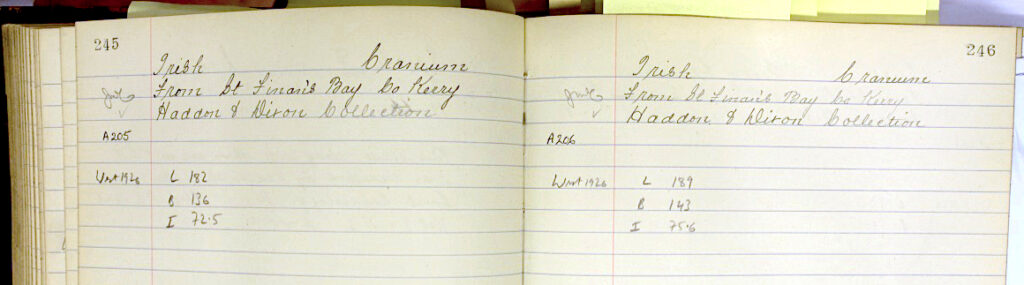 245
Irish Cranium
From St Finan's Bay Co Kerry
Haddon & Dixon Collection
A205
1926
L 182
B 136
I 72.5
246
Irish Cranium
From St Finan's Bay Co Kerry
Haddon & Dixon Collection
A206
1926
L 189
B 143
I 75.6